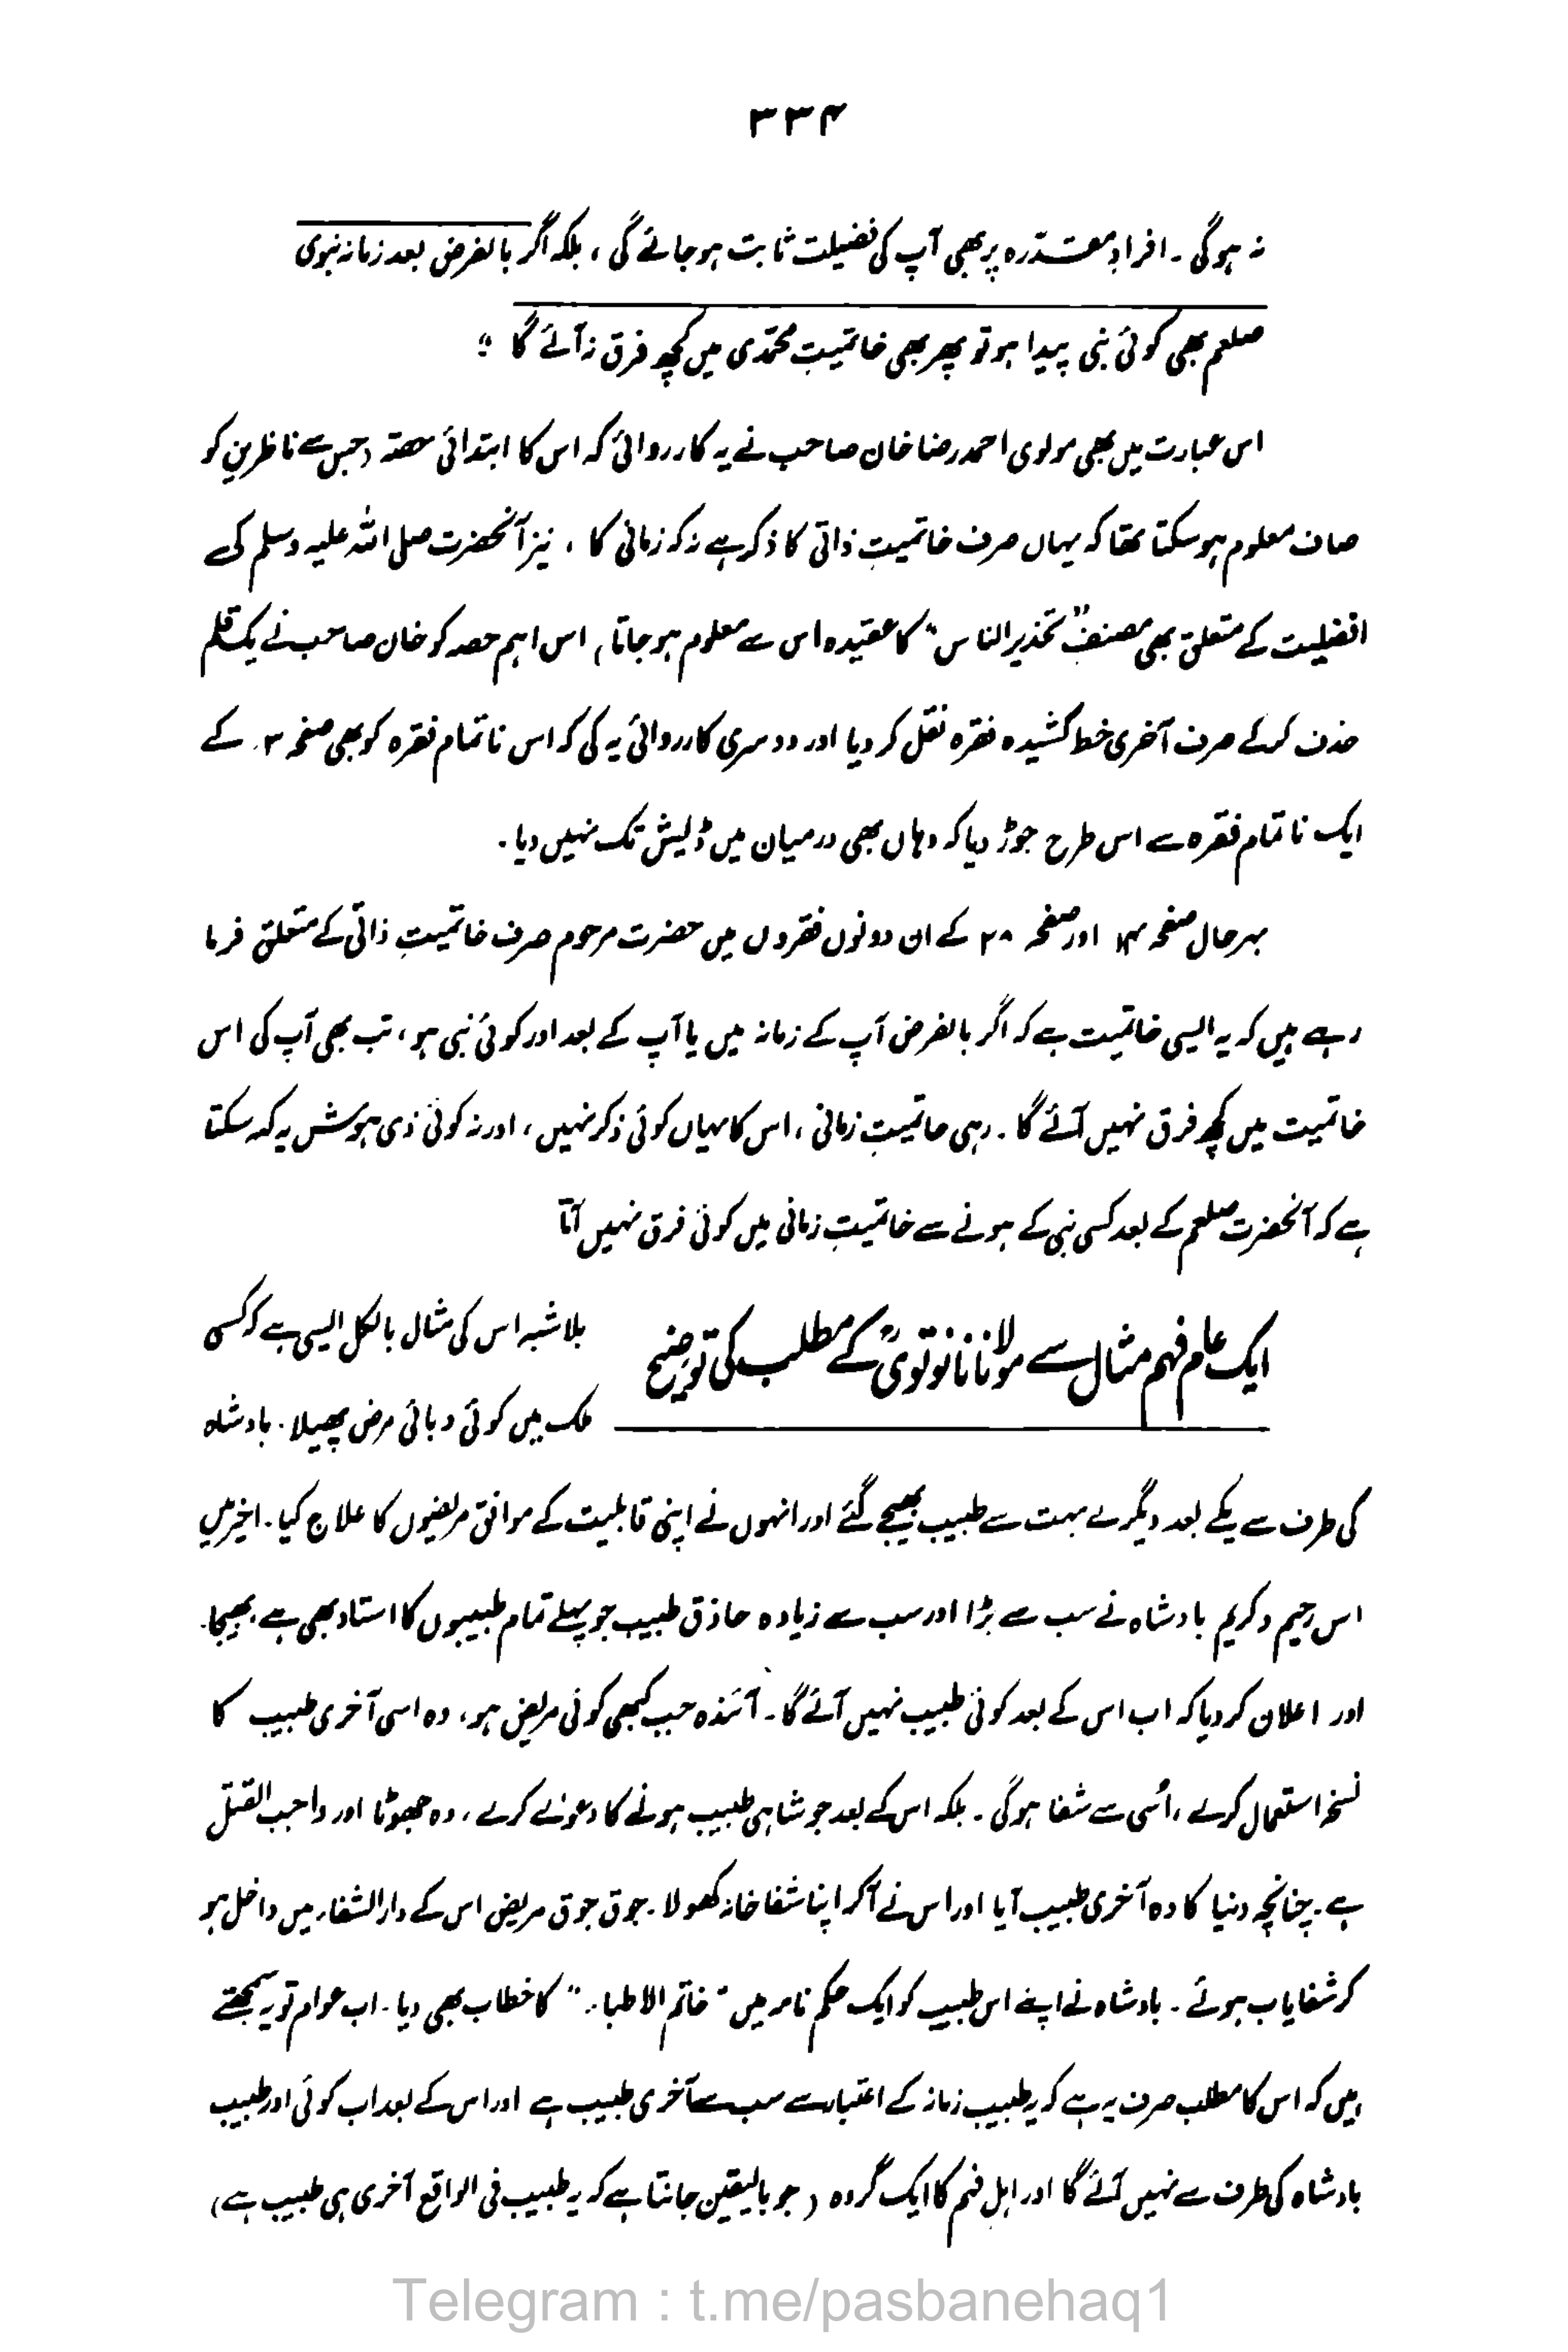 ۳۳۴
نہ ہوگی۔ افرادِ مقدّرہ پر بھی آپ کی فضیلت ثابت ہو جائے گی، بلکہ اگر بالفرض بعد زمانہ نبوی
صلعم بھی کوئی نبی پیدا ہو تو پھر بھی خاتمیتِ محمّدی میں کچھ فرق نہ آئے گا"
اس عبارت میں بھی مولوی احمد رضا خان صاحب نے یہ کارروائی کہ اس کا ابتدائی حصّہ (جس سے ناظرین کو
صاف معلوم ہو سکتا تھا کہ یہاں صرف خاتمیتِ ذاتی کا ذکر ہے نہ کہ زمانی کا، نیز آنحضرت صلی اللہ علیہ وسلم کی
افضلیت کے متعلق بھی مصنفِ "تحذیر الناس" کا عقیدہ اس سے معلوم ہو جاتا) اس اہم حصہ کو خان صاحب نے یک قلم
حذف کر کے صرف آخری خط کشیدہ فقرہ نقل کر دیا اور دوسری کارروائی یہ کی کہ اس ناتمام فقرہ کو بھی صفحہ ۳ کے
ایک ناتمام فقرہ سے اس طرح جوڑ دیا کہ وہاں بھی درمیان میں ڈیش تک نہیں دیا۔
بہر حال صفحہ ۱۴ اور صفحہ ۲۸ کے ان دونوں فقروں میں حضرت مرحوم صرف خاتمیتِ ذاتی کے متعلق فرما
رہے ہیں کہ یہ ایسی خاتمیت ہے کہ اگر بالفرض آپ کے زمانہ میں یا آپ کے بعد اور کوئی نبی ہو، تب بھی آپ کی اس
خاتمیت میں کچھ فرق نہیں آئے گا۔ رہی خاتمیتِ زمانی، اس کا یہاں کوئی ذکر نہیں، اور نہ کوئی ذی ہوش یہ کہہ سکتا
ہے کہ آنحضرت صلعم کے بعد کسی نبی کے ہونے سے خاتمیتِ زمانی میں کوئی فرق نہیں آتا
ایک عام فہم مثال سے مولانا نانوتویؒ کے مطلب کی توضیح
بلا شبہ اس کی مثال بالکل ایسی ہے کہ کسی
ملک میں کوئی وبائی مرض پھیلا۔ بادشاہ
کی طرف سے یکے بعد دیگرے بہت سے طبیب بھیجے گئے اور انہوں نے اپنی قابلیت کے موافق مریضوں کا علاج کیا۔ اخیر میں
اس رحیم و کریم بادشاہ نے سب سے بڑا اور سب سے زیادہ حاذق طبیب جو پہلے تمام طبیبوں کا استاد بھی ہے، بھیجا۔
اور اعلان کر دیا کہ اب اس کے بعد کوئی طبیب نہیں آئے گا۔ آئندہ جب کبھی کوئی مریض ہو، وہ اسی آخری طبیب کا
نسخہ استعمال کرے، اُسی سے شفا ہوگی۔ بلکہ اس کے بعد جو شاہی طبیب ہونے کا دعوٰے کرے، وہ جھوٹا اور واجب القتل
ہے۔ چنانچہ دنیا کا وہ آخری طبیب آیا اور اس نے آکر اپنا شفاخانہ کھولا۔ جوق جوق مریض اس کے دار الشفاء میں داخل ہو
کر شفایاب ہوئے۔ بادشاہ نے اپنے اس طبیب کو ایک حکم نامہ میں "خاتم الاطباء" کا خطاب بھی دیا۔ اب عوام تو یہ سمجھتے
ہیں کہ اس کا مطلب صرف یہ ہے کہ یہ طبیب زمانہ کے اعتبار سے سب سے آخری طبیب ہے اور اس کے بعد اب کوئی اور طبیب
بادشاہ کی طرف سے نہیں آئے گا اور اہل فہم کا ایک گروہ (جو بالیقین جانتا ہے کہ یہ طبیب فی الواقع آخری ہی طبیب ہے)
Telegram : t.me/pasbanehaq1